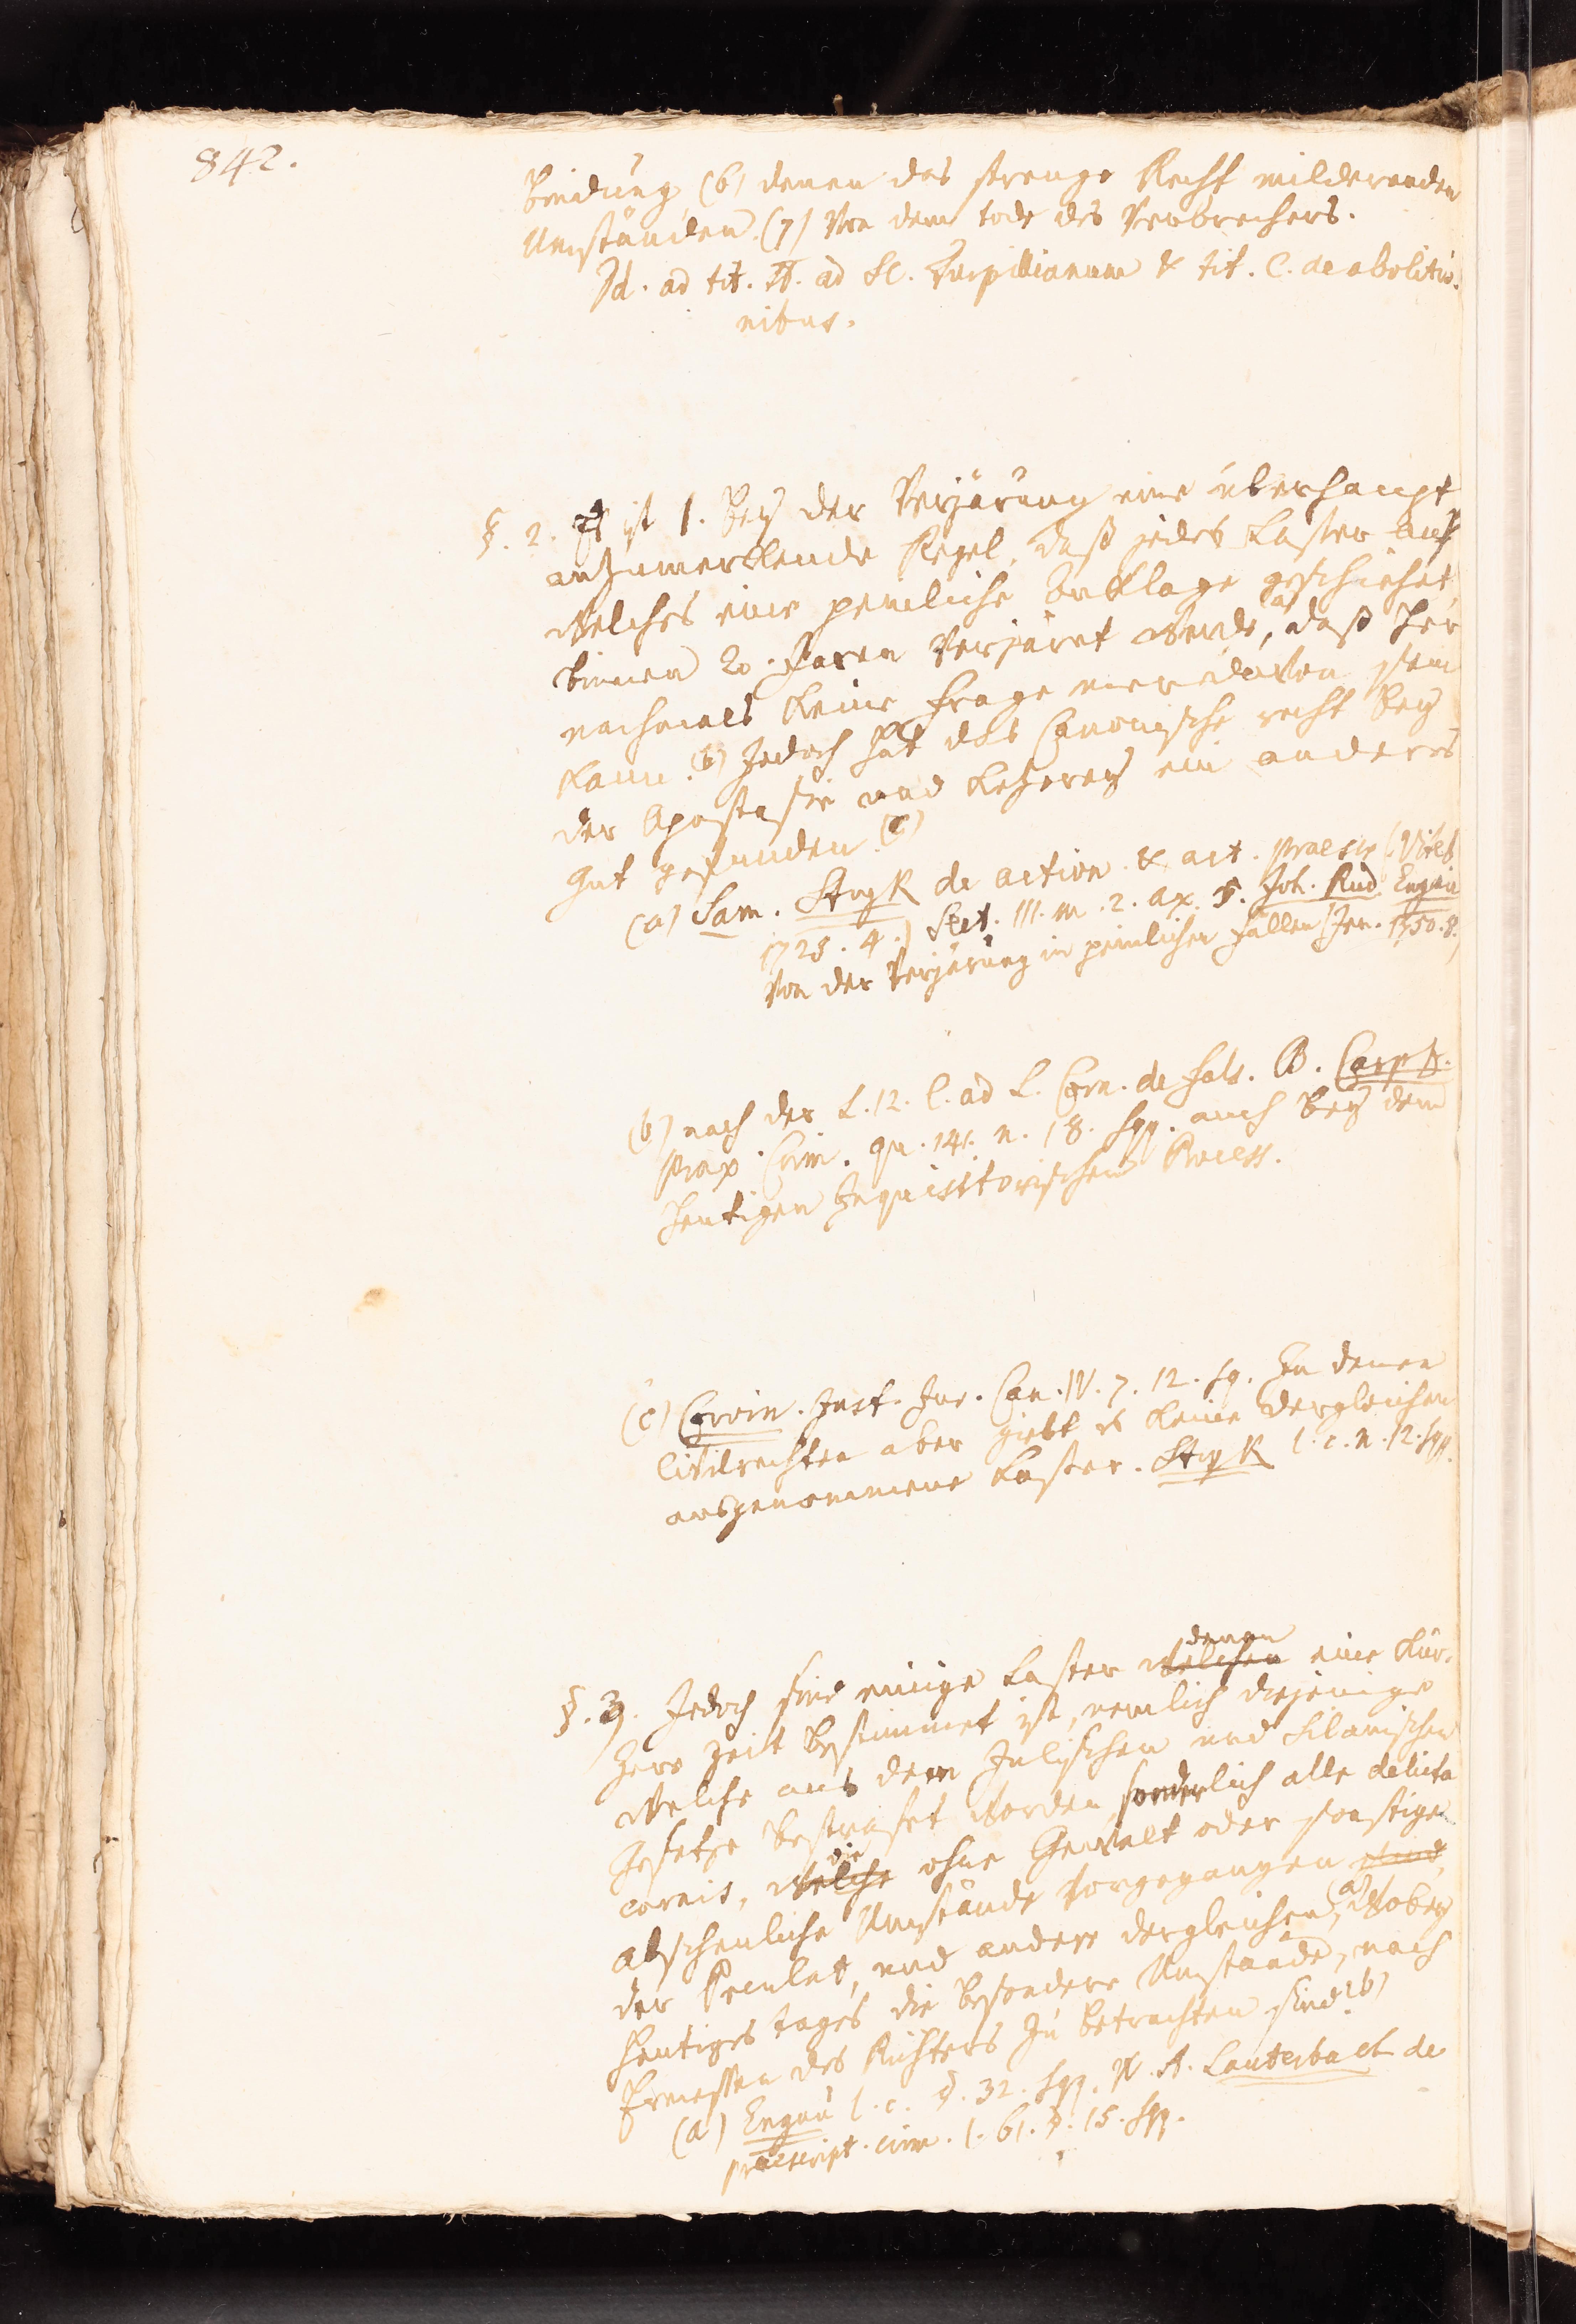 842.
bindung, (6) denen das strenge Recht mildernden
Umständen. (7) Von dem tode des Verbrechers.
Id. ad tit. ff. ad SC. Turpillianum & tit. C. de abolitio-
nibus.
§. 2. Es ist 1. bey der Verjärung eine überhaupt
anzumerckende Regel, daß jedes Laster auf
welches eine peinliche Anklage geschiehet,
binnen 20. Jaren verjäret werde, (a) daß her
nachmals keine frage mer davon sein
kann. (b) Jedoch hat das Canonische recht bey
der Apostasie und Ketzerey ein anderes
gut gefunden (c)
(a) Sam. Stryk de action. & act. praescr. (Viteb.
1725. 4.) Sect. III. m. 2. ax. 5. Joh. Rud. Engau
von der Verjärung in peinlichen Fällen (Jen. 1750. 8.)
(b) nach der L. 12. C. ad L. Corn. de fals. B. Carpz.
Prax. Crim. qu. 141. n. 18. sqq. auch bey dem
heutigen Inquisitorischen Process.
(c) Corvin. Inst. Jur. Can. IV. 7. 12. sq. In denen
Civilrechten aber giebt es keine dergleichen
ausgenommene Laster. Stryk l. c. n. 12. sqq.
§. 3. Jedoch sind einige Laster welchen denen eine kür-
zere Zeit bestimmet ist, nemlich diejenige
welche aus dem Julischen und Silanischen
Gesetze bestrafet worden, sonderlich alle delicta
carnis, welche die ohne Gewalt oder sonstige
abscheuliche Umstände vorgegangen sind,
der Peculat, und andere dergleichen, (a) Wobey
heutiges tages die besondere Umstände, nach
Ermessen des Richters zu betrachten sind. (b)
(a) Engau l. c. §. 32. sqq. W. A. Lauterbach de
praescript. crim. l. 61. §. 15. sqq.